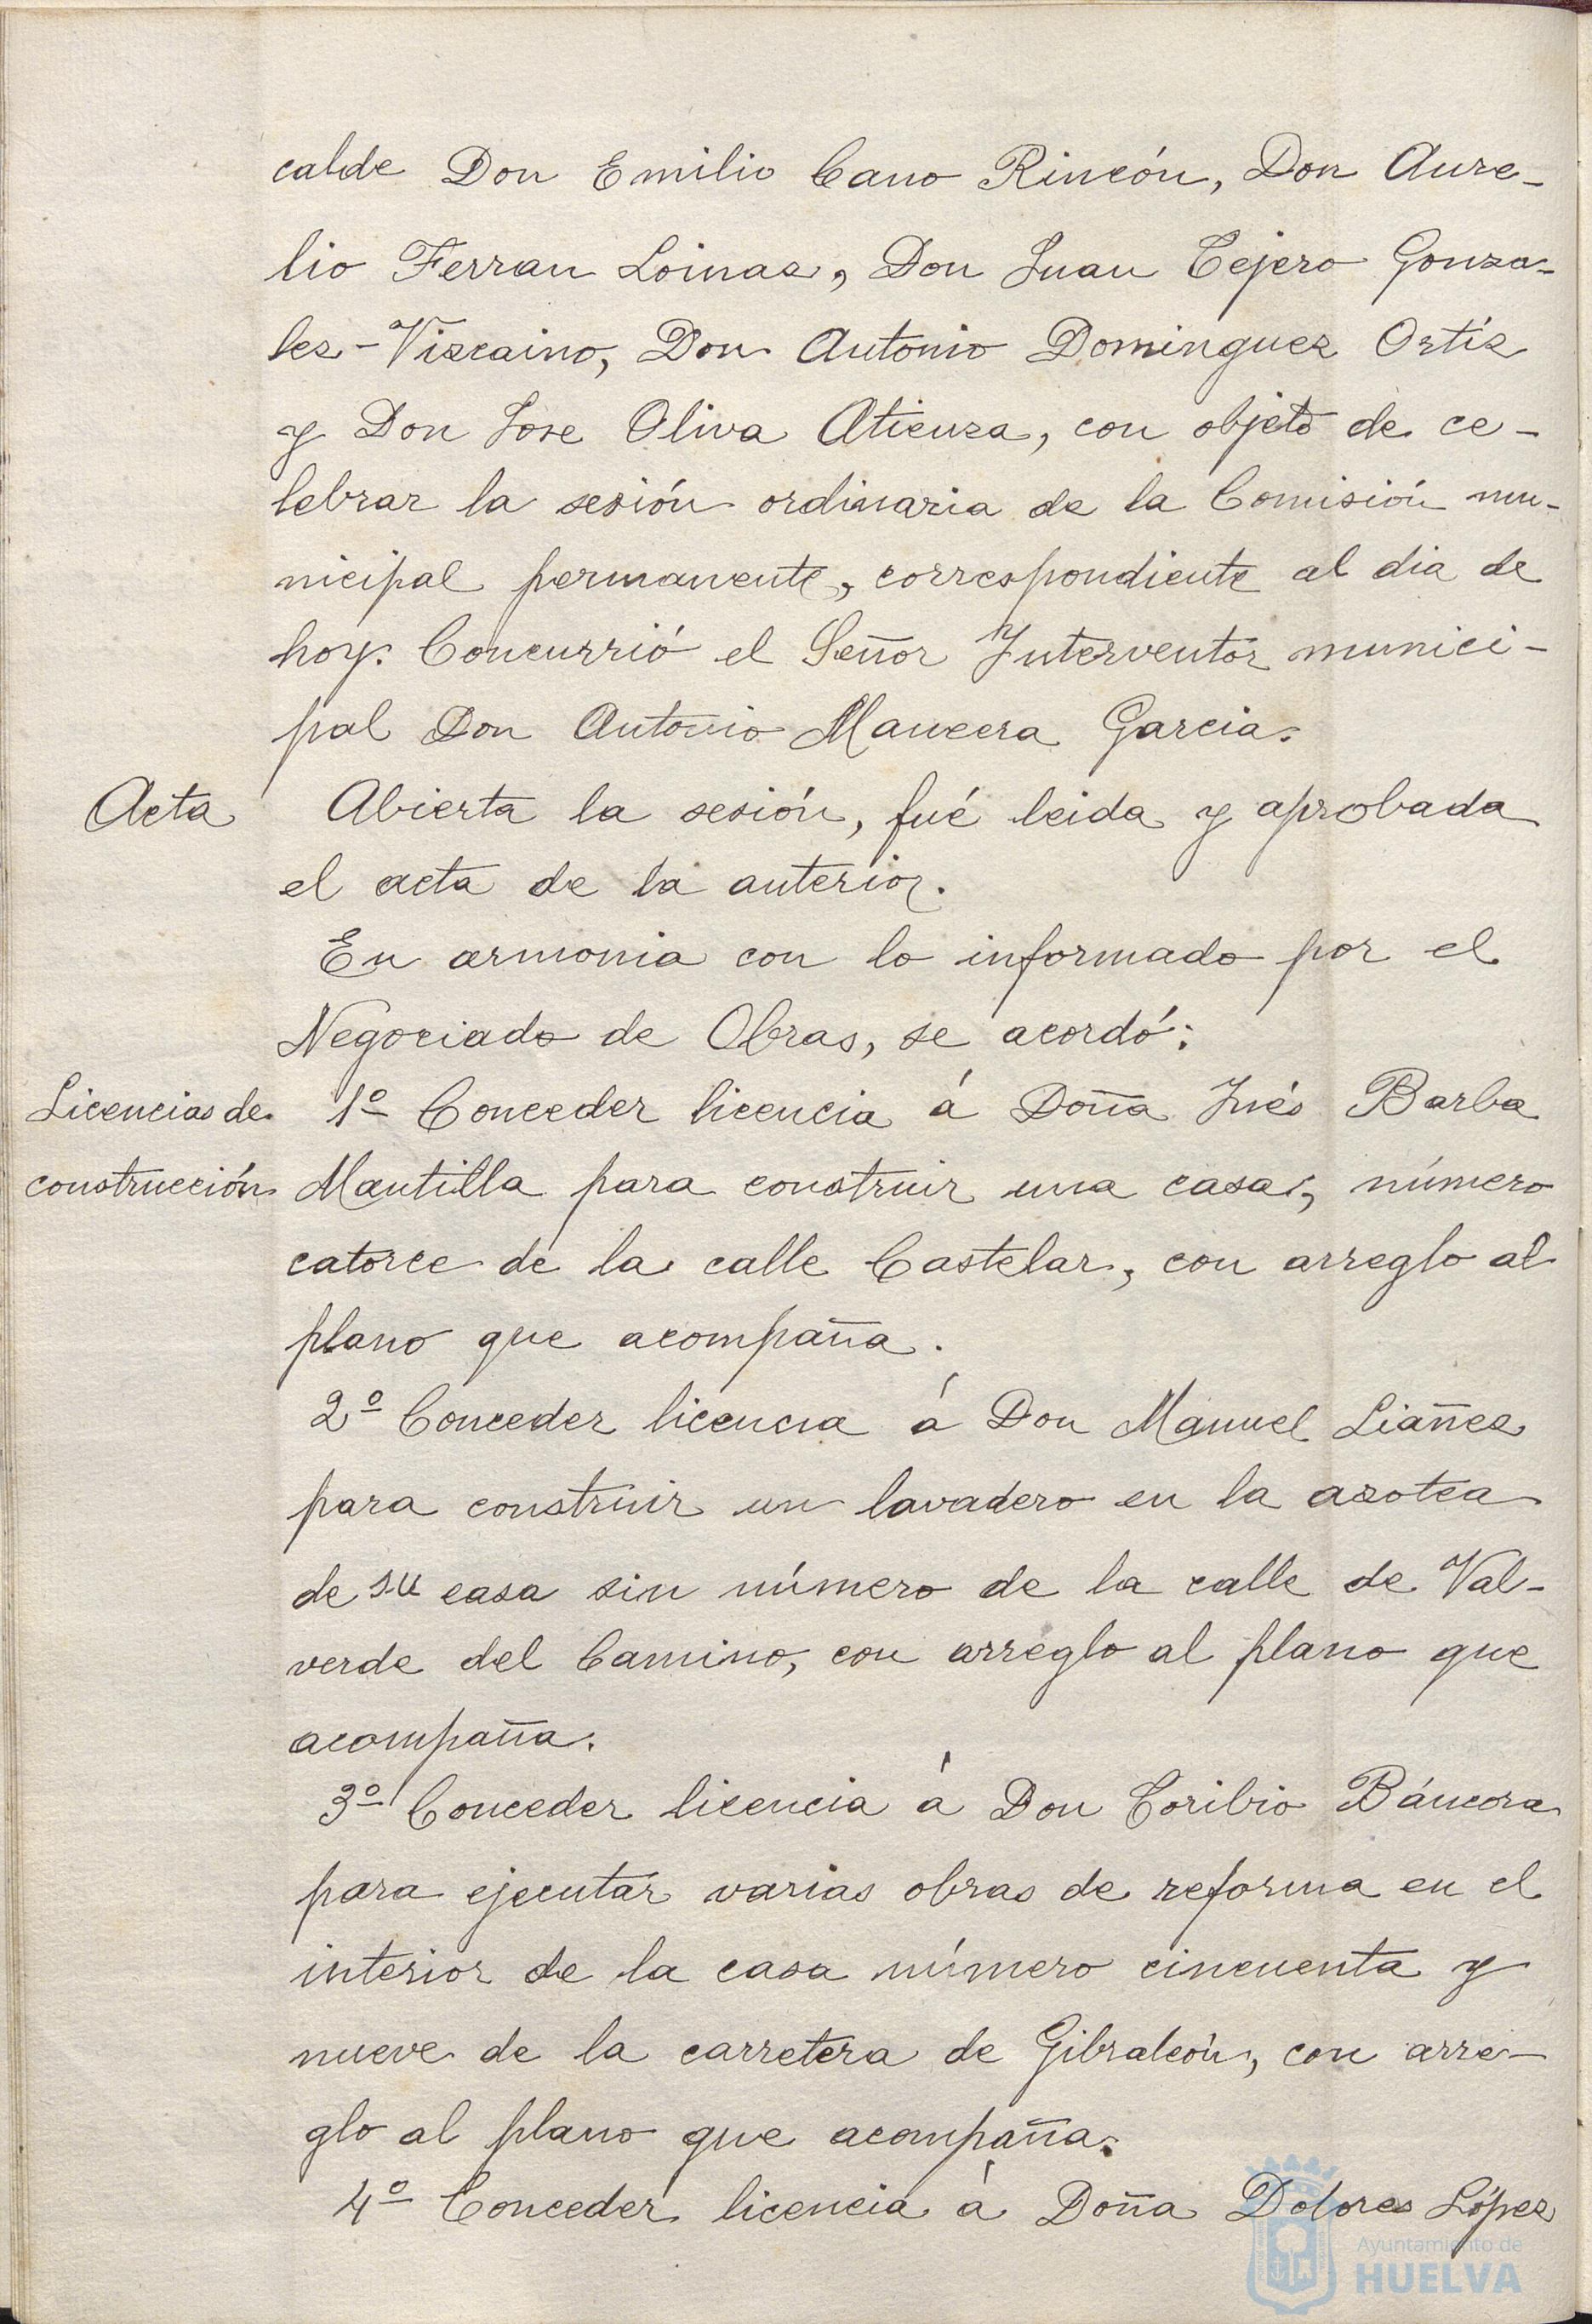 calde Don Emilio Cano Rincón, Don Aure-
lio Ferran Loinaz, Don Juan Tejero Gonza-
lez-Vizcaino, Don Antonio Dominguez Ortíz
y Don Jose Oliva Atienza, con objeto de ce-
lebrar la sesión ordinaria de la Comisión mu-
nicipal permanente, correspondiente al dia de
hoy. Concurrió el Señor Interventor munici-
pal Don Antonio Mancera Garcia.
Acta Abierta la sesión, fué leida y aprobada
el acta de la anterior.
En armonia con lo informado por el
Negociado de Obras, se acordó:
Licencias de 1º Conceder licencia á Doña Inés Barba
construcción Mantilla para construir una casa, número
catorce de la calle Castelar, con arreglo al
plano que acompaña.
2º Conceder licencia á Don Manuel Liáñez
para construir un lavadero en la azotea
de su casa sin número de la calle de Val-
verde del Camino, con arreglo al plano que
acompaña.
3º Conceder licencia á Don Toribio Báncora
para ejecutar varias obras de reforma en el
interior de la casa número cincuenta y
nueve de la carretera de Gibraleón, con arre-
glo al plano que acompaña.
4º Conceder licencia á Doña Dolores López
Ayuntamiento de
HUELVA